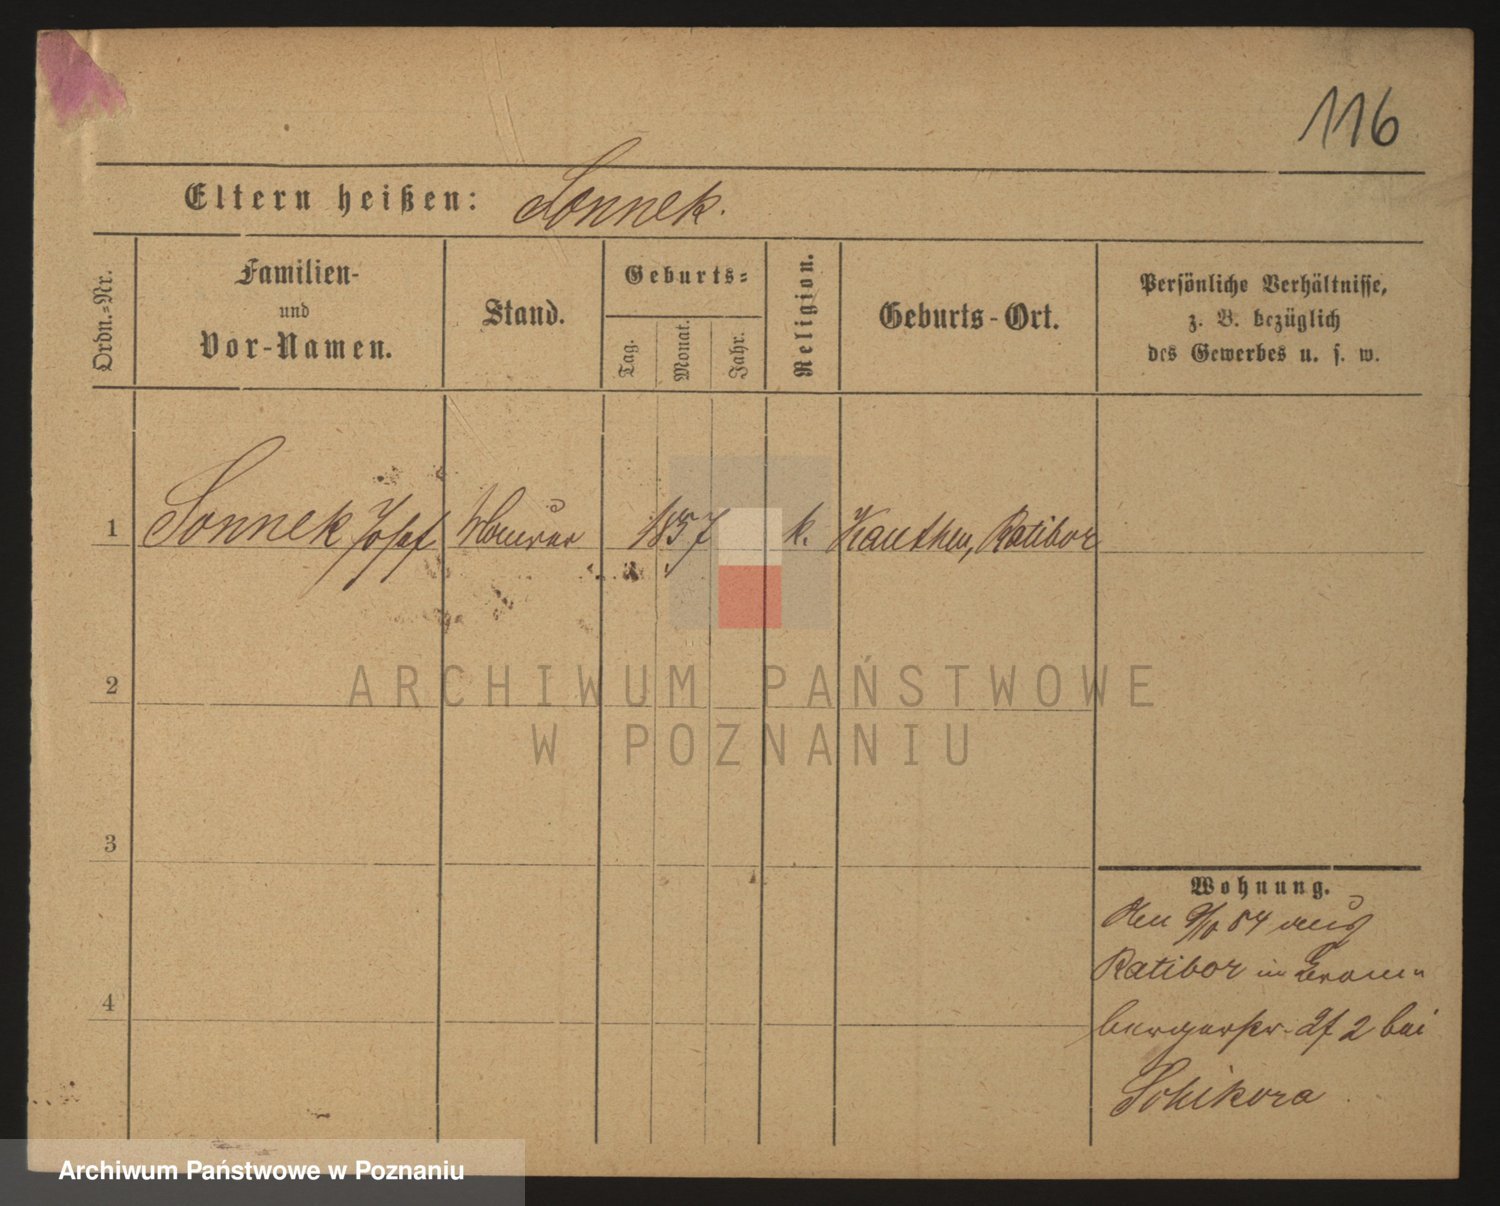 116
Eltern heißen: Sonnek.
Ordn.-Nr.
Familien-
und
Vor-Namen.
Stand.
Geburts-
Tag.
Monat.
Jahr.
Religion.
Geburts-Ort.
Persönliche Verhältnisse,
z. B. bezüglich
des Gewerbes u. s. w.
1 Sonnek Josef Maurer 1857 k. Kauthen, Ratibor
2
3
4
Wohnung.
Den 84 aus
Ratibor in
2 bei
Schikora
ARCHIWUM PAŃSTWOWE
W POZNANIU
Archiwum Państwowe w Poznaniu